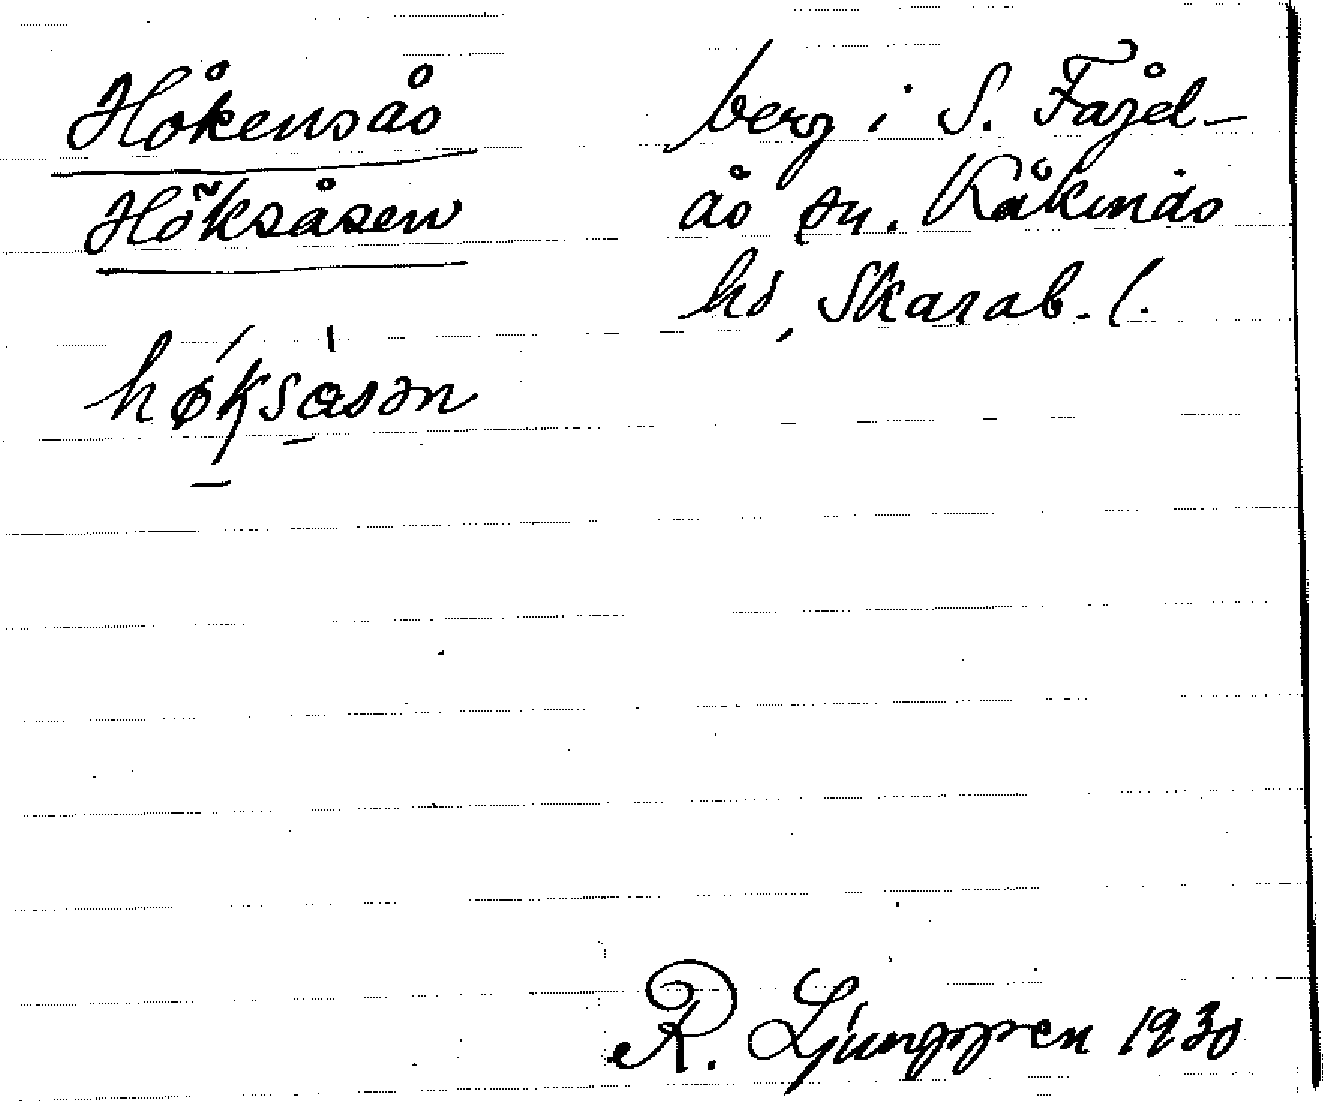 Hökensås
Höksåsen
höksåsən
berg i S. Fågel-
ås sn. Kåkinds
hd, Skarab. l.
R. Ljunggren 1930